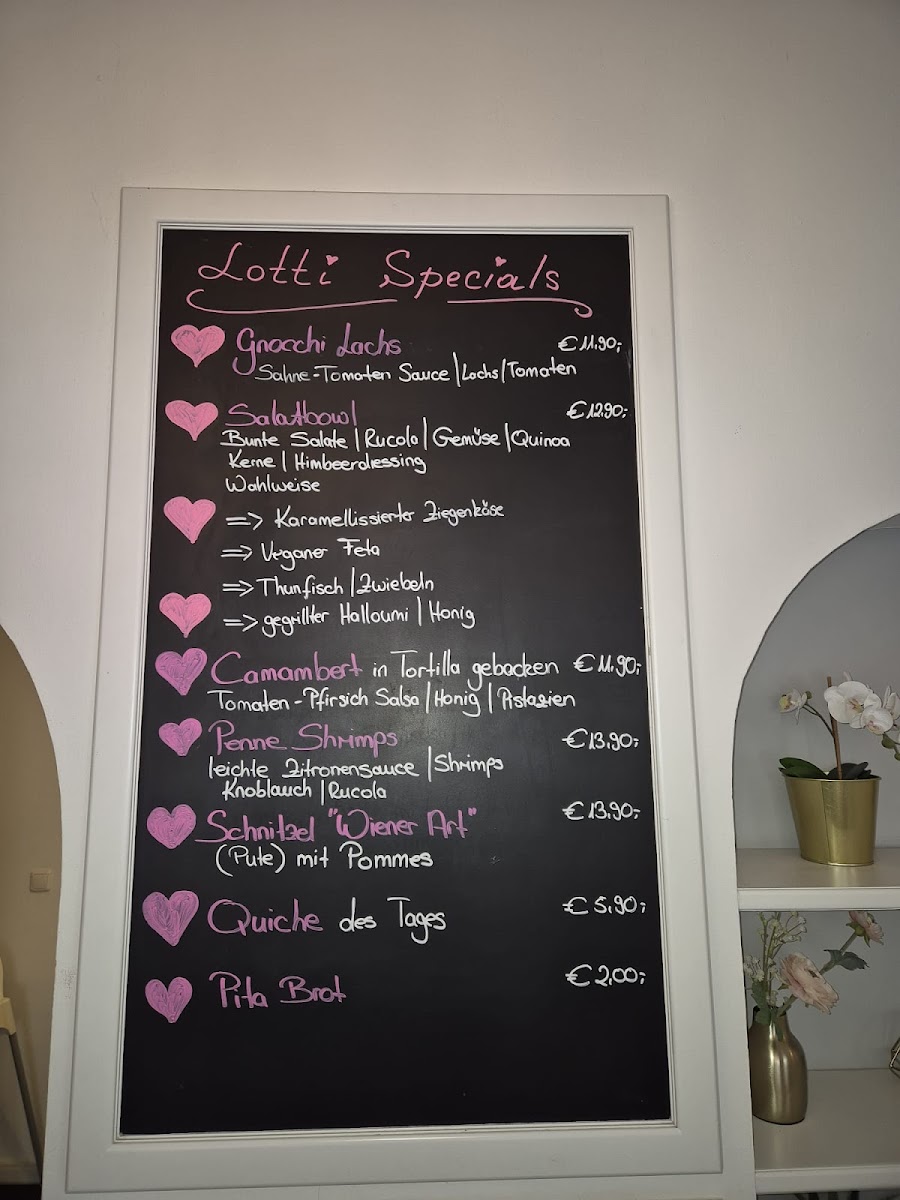 Lotti Specials
Gnocchi Lachs €11.90,-
Sahne-Tomaten Sauce|Lachs|Tomaten
Salatbowl €12.90,-
Bunte Salate|Rucola|Gemüse|Quinoa
Kerne|Himbeerdressing
Wahlweise
=> Karamellissierter Ziegenkäse
=> Veganer Feta
=> Thunfisch|Zwiebeln
=> gegrillter Halloumi|Honig
Camambert in Tortilla gebacken €11.90,-
Tomaten-Pfirsich Salsa|Honig|Pistazien
Penne Shrimps €13.90,-
leichte Zitronensauce|Shrimps
Knoblauch|Rucola
Schnitzel "Wiener Art" €13.90,-
(Pute) mit Pommes
Quiche des Tages €5.90,-
Pita Brot €2.00,-